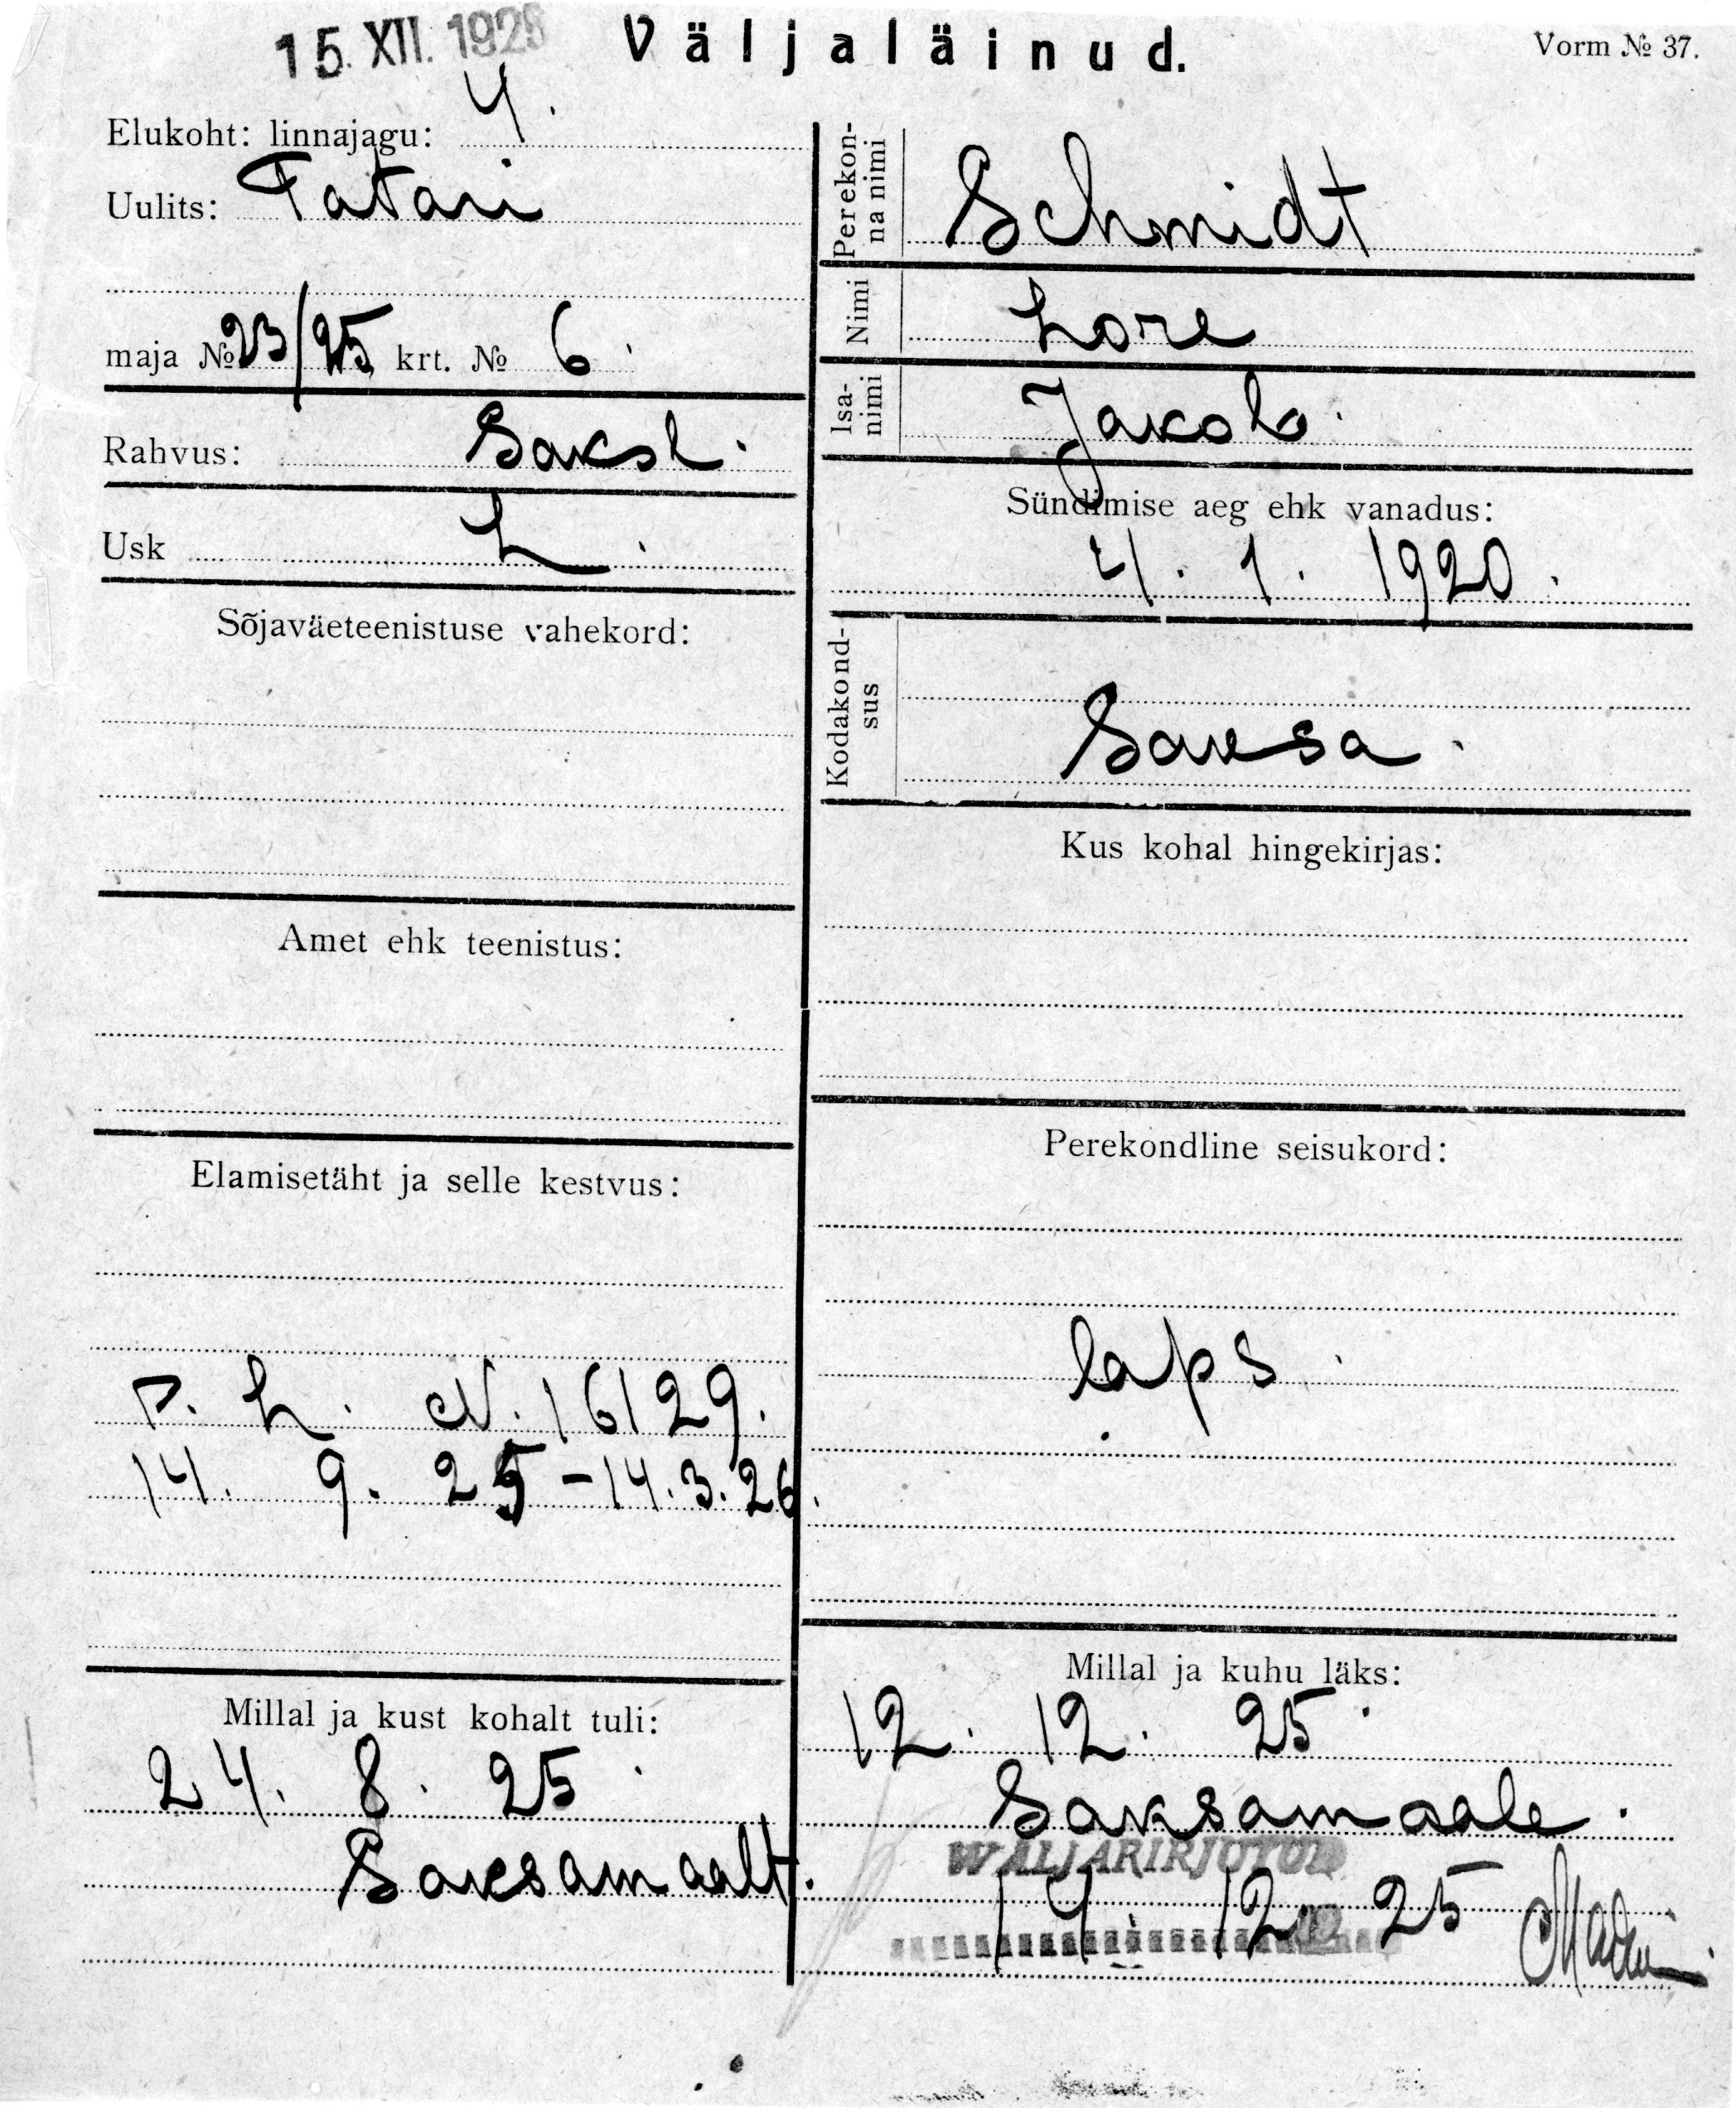 15. XII. 1925
Väljaläinud.
Vorm № 37.
Elukoht: linnajagu: 4.
Uulits: Tatari
maja № 23/25 krt. № 6.
Rahvus: Saksl.
Usk L.
Sõjaväeteenistuse vahekord:
Amet ehk teenistus:
Elamisetäht ja selle kestvus:
P. L. N. 16129.
14. 9. 25 - 14. 3. 26.
Millal ja kust kohalt tuli:
24. 8. 25.
Saksamaalt.
Perekon-
na nimi
Schmidt
Nimi
Lore
Isa-
nimi
Jakob.
Sündimise aeg ehk vanadus:
4. 1. 1920.
Kodakond-
sus
Saksa.
Kus kohal hingekirjas:
Perekondline seisukord:
laps.
Millal ja kuhu läks:
12. 12. 25.
Saksamaale.
WÄLJAKIRJUTUD
14. 12. 25